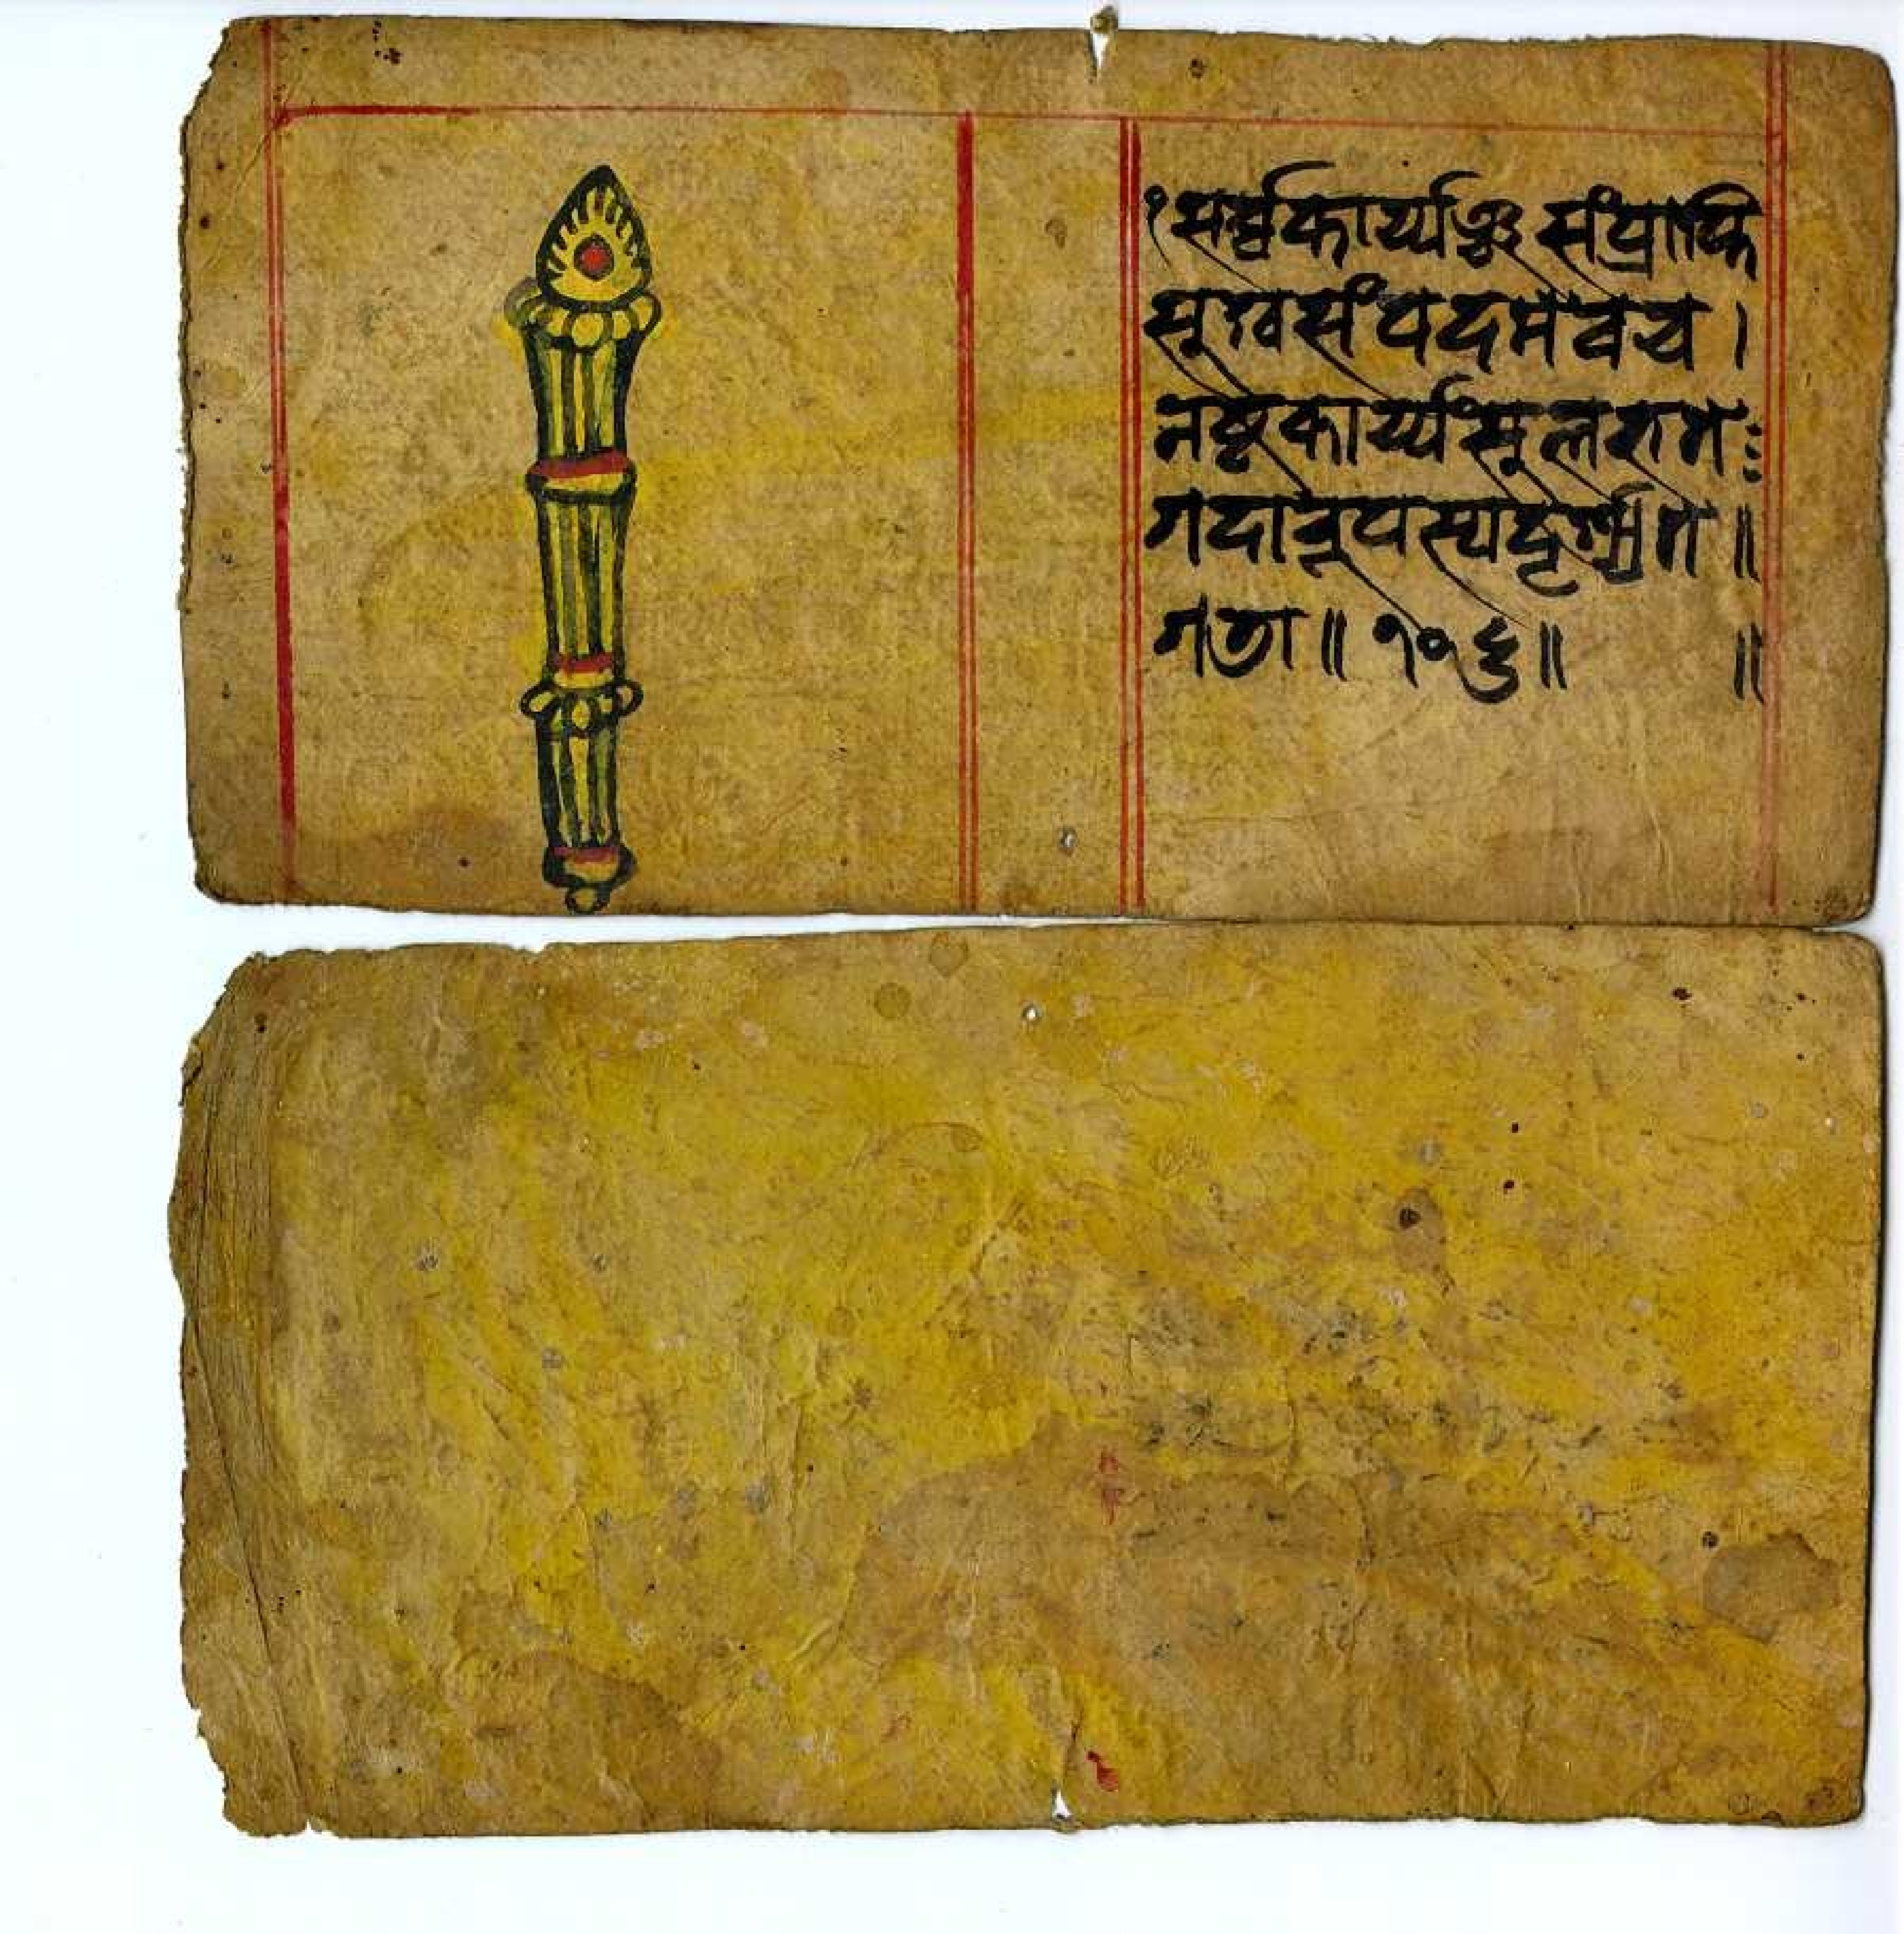 १ सर्व्वकार्य्यञ्च संप्राप्ति
सुखसंपदमेवच ।
नष्टकार्य्यं सुलरुते
गदारूपस्य दृश्यते ॥
गता ॥ १०६ ॥ ॥